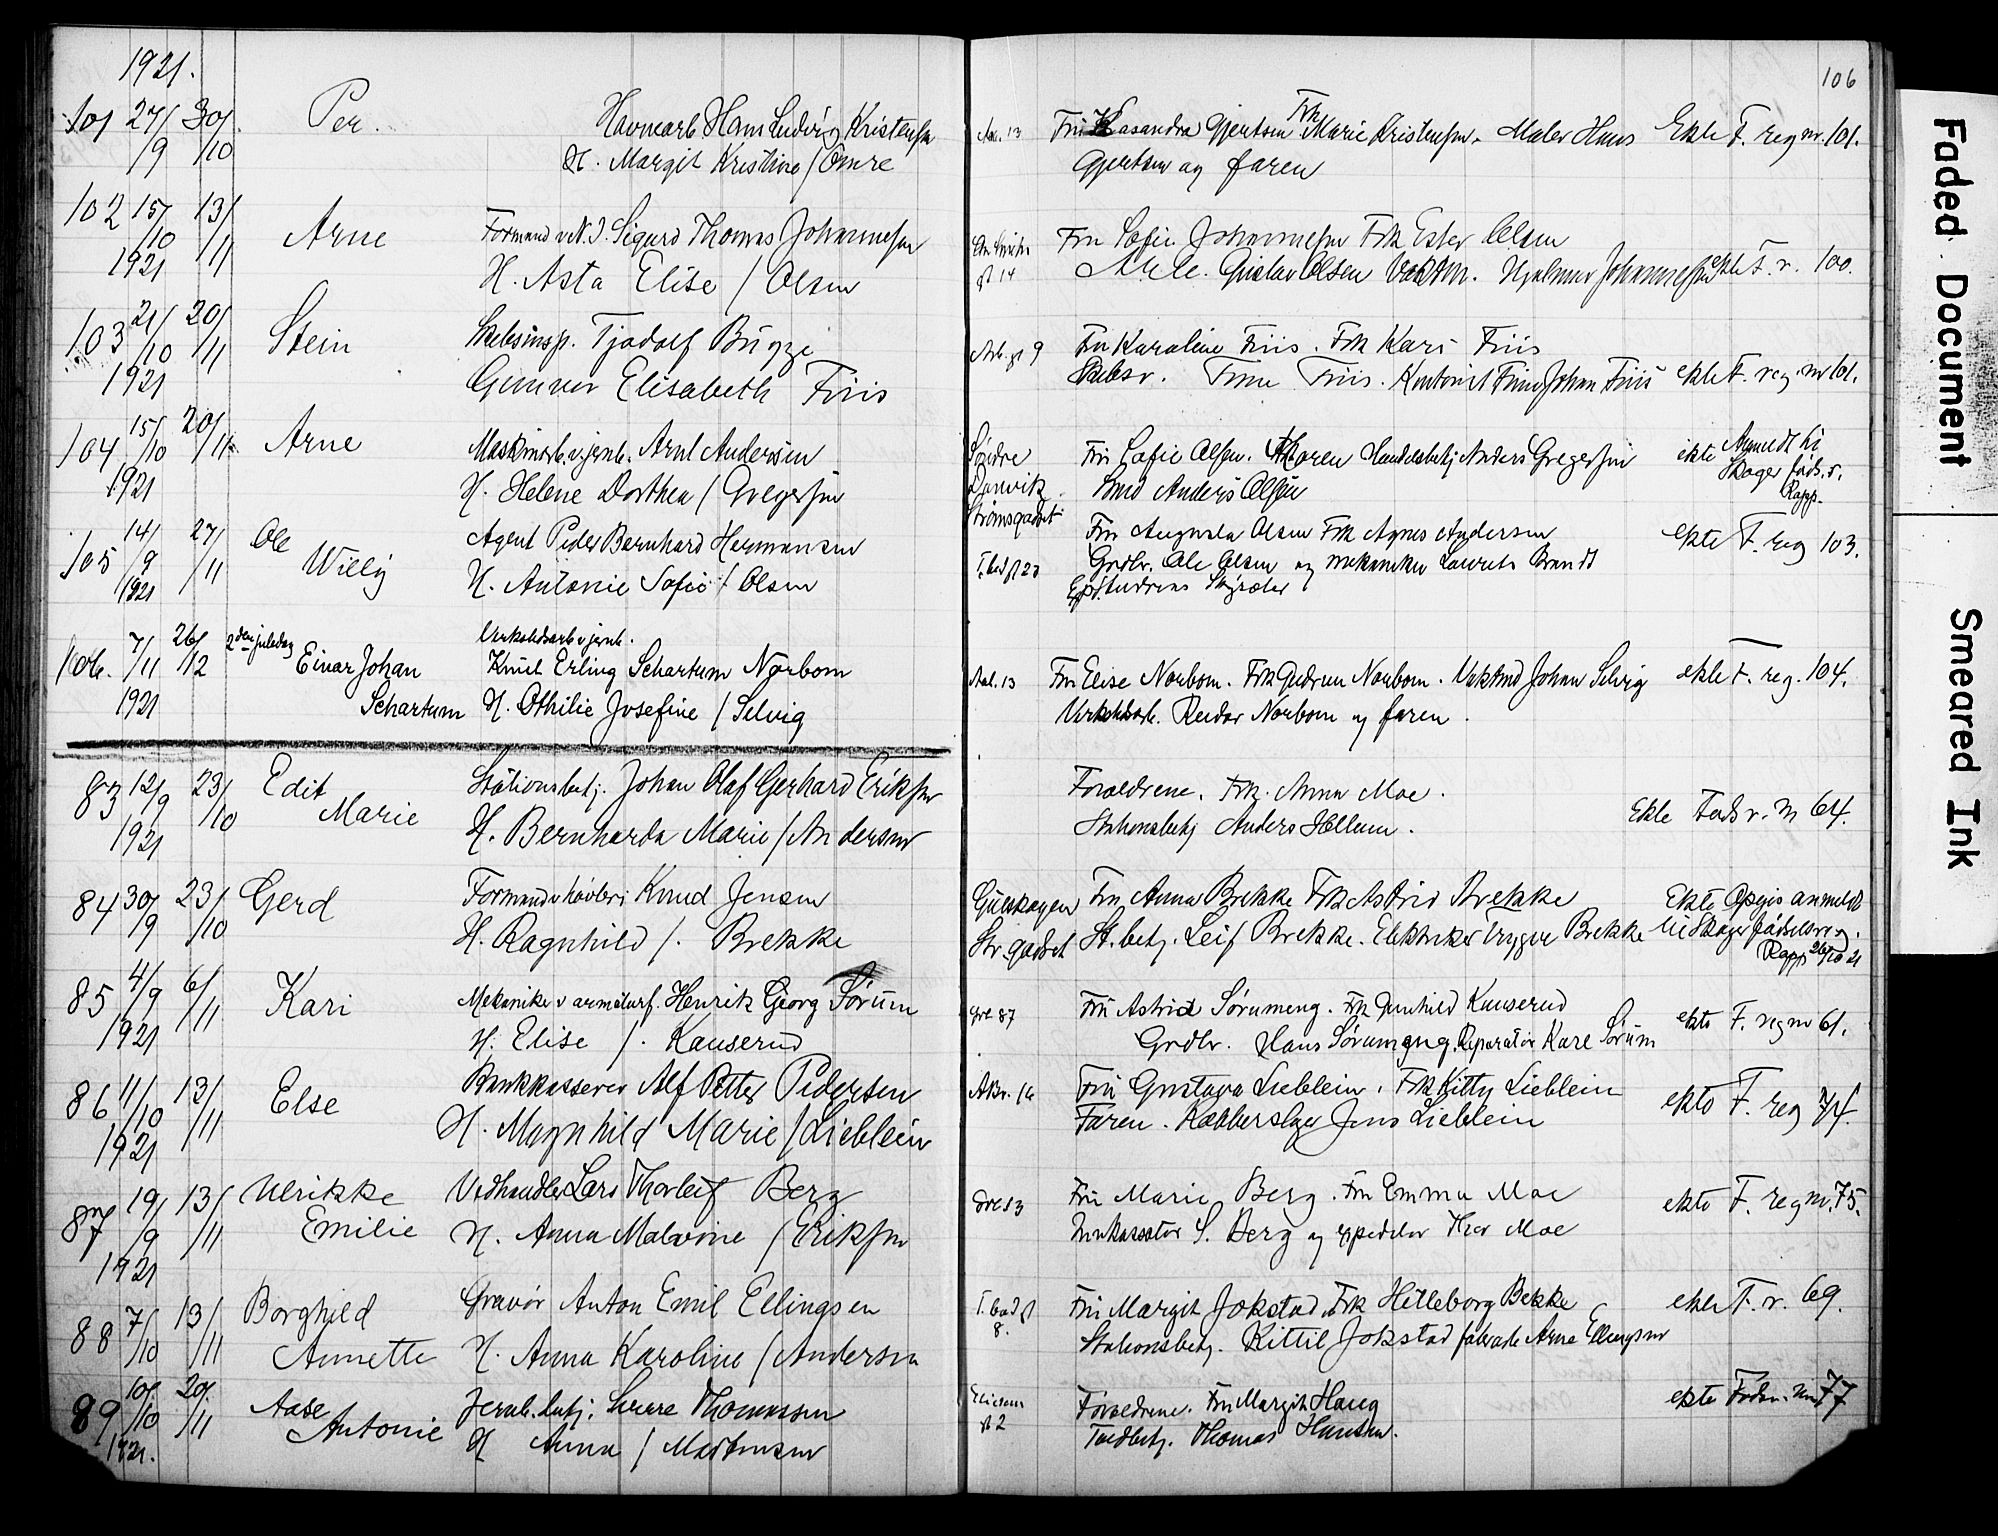 1921.
106
101 27/9 30/10 Per. Havnearb Hans Ludvig Kristensen
H. Margit Kristine / Omre
13 Fru Kasandra Gjertsen Frk Marie Kristensen. Maler Hans
Gjertsen og faren
Ekte F. reg nr. 101.
102 15/10 1921 13/11 Arne Formand v N. J. Sigurd Thomas Johannesen
H. Asta Elise / Olsen
gt 14 Fru Sofie Johannesen Frk Ester Olsen
Gustav Olsen Hjalmar Johannesen
ekte F. r. 100.
103 21/10 1921 20/11 Stein Skibsinsp. Tjodolf Bugge
Gunvor Elisabeth Friis
9 Fru Karoline Friis. Frk Kari Friis
Skibsr. Friis. Kontorist Finn Johan Friis
ekte F. reg. nr 101.
104 15/10 1921 20/11 Arne Maskinarb. v. jernb. Arnt Andersen
H. Helene Dorthea / Gregersen
Søndre
Danvik
Strømsgodset
Fru Sofie Olsen. Faren Handelsbetj Anders Gregersen
Anders Olsen
ekte Anmeldt til
Skoger føds. r.
Rapp.
105 14/9 1921 27/11 Ole
Willy
Agent Peder Bernhard Hermansen
H. Antonie Sofie / Olsen
T. bad gt 23 Fru Augusta Olsen Frk Agnes Andersen
Grdbr. Ole Olsen og mekaniker Laurits Brandt
ekte F. reg 103.
106. 7/11 1921 26/12 2den juledag Einar Johan
Schartum
Verkstedsarb v jernb.
Knut Erling Schartum Norbom
H. Othilie Josefine / Selvig
13 Fru Elise Norbom. Frk Gudrun Norbom. Johan Selvig
Verkstedsarb. Reidar Norbom og faren.
ekte F. reg. 104.
83 12/9 1921 23/10 Edit
Marie
Stationsbetj. Johan Olaf Gerhard Eriksen
H. Bernharda Marie / Andersen
Forældrene. Frk. Anna Moe.
Stationsbetj Anders Hellum.
Ekte Føds r. N 64.
84 30/9 23/10 Gerd Formand v høvleri Knud Jensen
H. Ragnhild /. Brekke
Gulskogen
Str. godset
Fru Anna Brekke Frk Astrid Brekke
St. betj. Leif Brekke. Elektriker Trygve Brekke
Ekte Opgis anmeldt
til Skoger fødselsreg.
Rapp 26/10 21
85 4/9 1921 6/11 Kari Mekaniker v armaturf. Henrik Georg Sørum
H. Elise /. Kauserud
87 Fru Astrid Sørumeng. Frk Gunhild Kauserud
Grdbr. Hans Sørumeng. Reparatør Kare Sørum
ekte F. reg nr 61.
86 11/10 1921 13/11 Else Bankkasserer Alf Petter Pedersen
H. Magnhild Marie / Lieblein
16 Fru Gustava Lieblein. Frk Kitty Lieblein
Faren. Kobberslager Jens Lieblein
ekte F. reg 74.
87 19/9 1921 13/11 Ulrikke
Emilie
Vedhandler Lars Thorleif Berg
H. Anna Malvine / Eriksen
Fru Marie Berg. Fru Emma Moe
Inkassator S. Berg og expeditør Thor Moe
ekte F. reg nr. 75.
88 7/10 13/11 Borghild
Annette
Gravør Anton Emil Ellingsen
H. Anna Karoline / Andersen
T. bad gt
8.
Fru Margit Jokstad Frk Hilleborg Bekke
Stationsbetj. Kittil Jokstad fabrarb Arne Ellingsen
ekte F. r. 69.
89 10/10 1921. 20/11 Aase
Antonie
Jernb. betj. Sverre Thomassen
H Anna / Mortensen
gt 2 Forældrene. Fru Margit Haug
Toldbetj. Thomas Hansen.
ekte Fødsr. nr 77
Faded Document
Smeared Ink